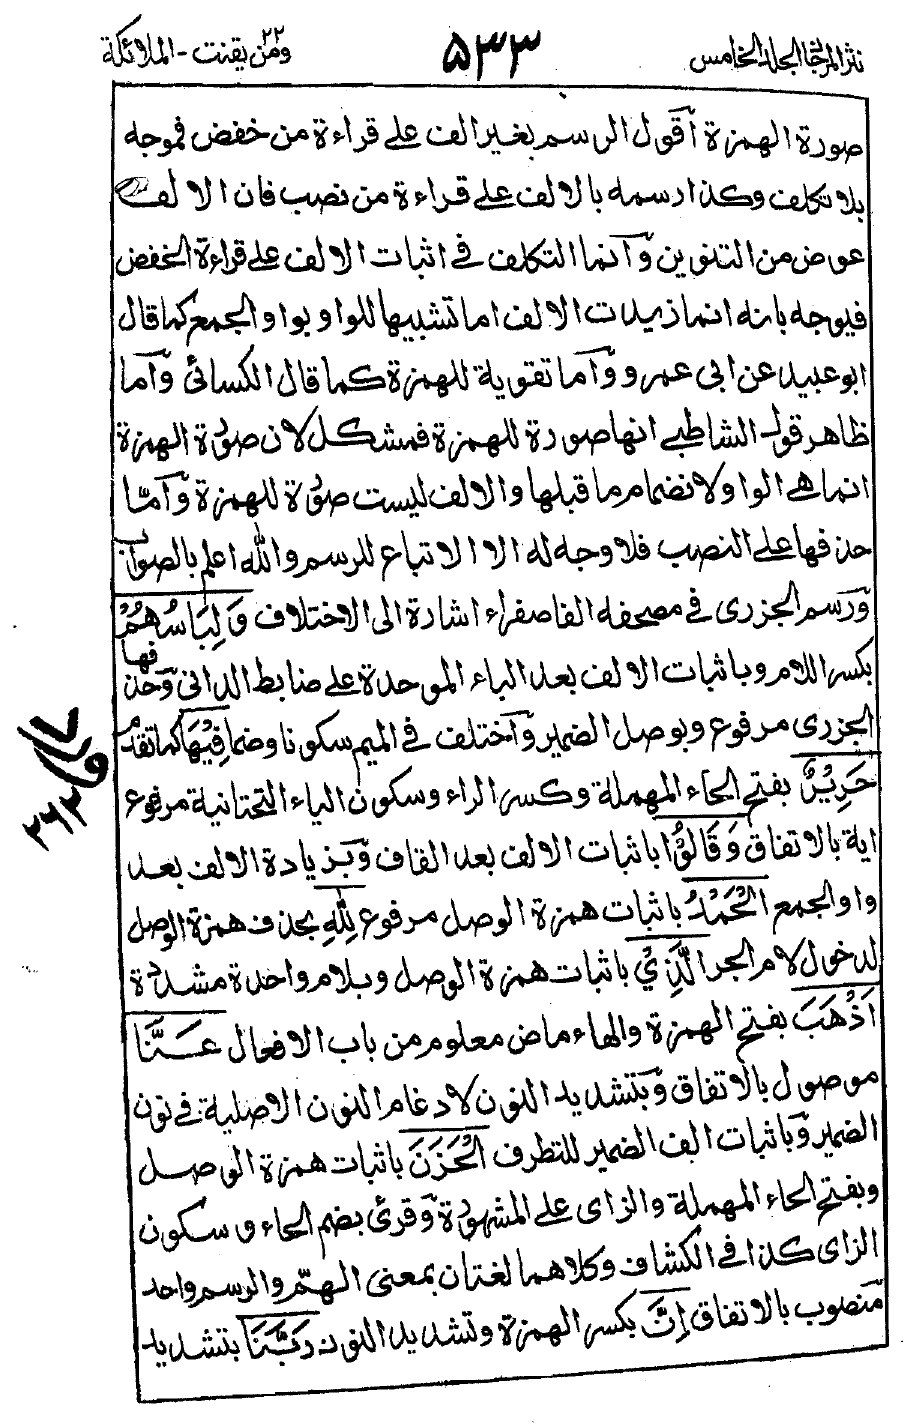 نثر المرجان المجلد الخامس
۵۳۳
۲۲
ومن يقنت - الملائكة
صورة الهمزة اقول الرسم بغير الف على قراءة من خفض فموجه
بلا تكلف وكذا رسمه بالالف على قراءة من نصب فان الالف
عوض من التنوين وانما التكلف في اثبات الالف على قراءة الخفض
فيوجه بانه انما زيدت الالف اما تشبيها للواو بواو الجمع كما قال
ابو عبيد عن ابى عمرو واما تقوية للهمزة كما قال الكسائى واما
ظاهر قول الشاطبى انها صورة للهمزة فمشكل لان صورة الهمزة
انما هى الواو لانضمام ما قبلها والالف ليست صورة للهمزة وامّا
حذفها على النصب فلا وجه له الا الاتباع للرسم والله اعلم بالصواب
ورسم الجزرى في مصحفه الفا صفراء اشارة الى الاختلاف وَلِبَاسُهُمْ
بكسر اللام وباثبات الالف بعد الباء الموحدة على ضابط الدانى وحذفها
الجزرى مرفوع وبوصل الضمير واختلف في الميم سكونا وضما فِيْهَا كما تقدم
حَرِيْرٌ بفتح الحاء المهملة وكسر الراء وسكون الياء التحتانية مرفوع
اية بالاتفاق وَقَالُوْا باثبات الالف بعد القاف وبزيادة الالف بعد
واو الجمع الْحَمْدُ باثبات همزة الوصل مرفوع لِلّٰهِ بحذف همزة الوصل
لدخول لام الجر الَّذِيْ باثبات همزة الوصل وبلام واحدة مشددة
اَذْهَبَ بفتح الهمزة والهاء ماض معلوم من باب الافعال عَنَّا
موصول بالاتفاق وبتشديد النون لادغام النون الاصلية في نون
الضمير وباثبات الف الضمير للتطرف الْحَزَنَ باثبات همزة الوصل
وبفتح الحاء المهملة والزاى على المشهورة وقرئ بضم الحاء وسكون
الزاى كذا في الكشاف وكلاهما لغتان بمعنى الهمّ والرسم واحد
منصوب بالاتفاق اِنَّ بكسر الهمزة وتشديد النون رَبَّنَا بتشديد